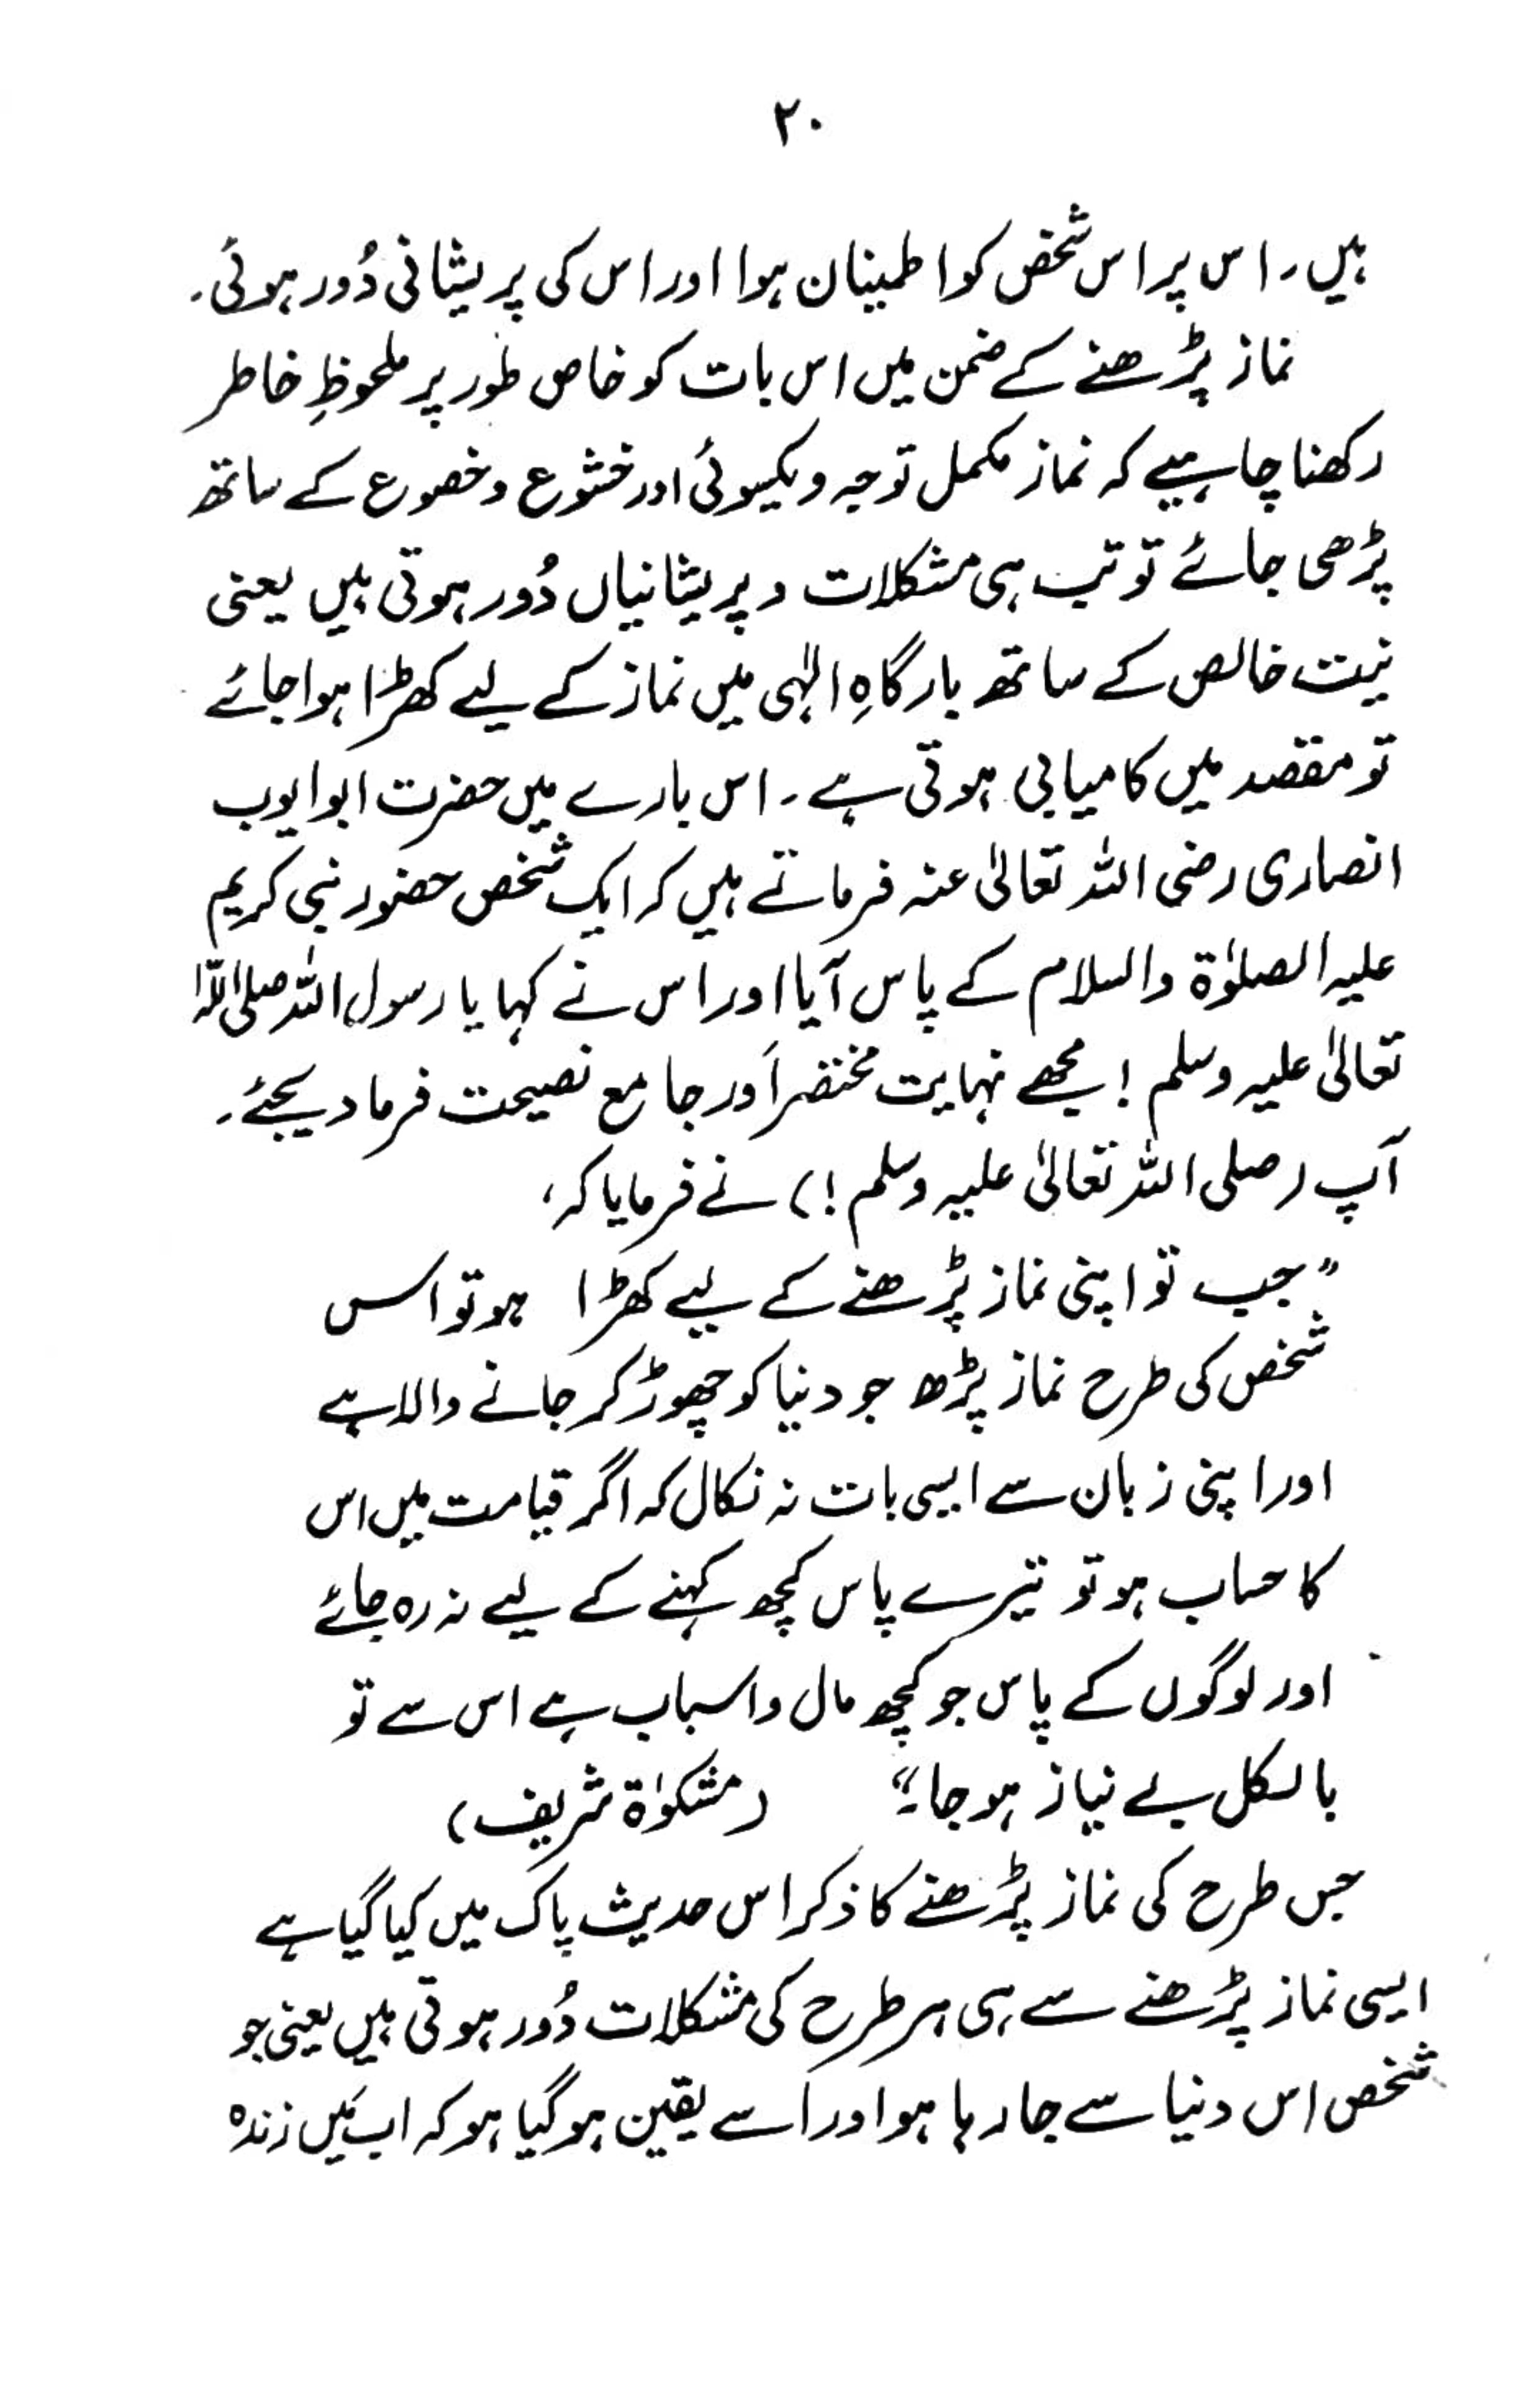 ۲۰
ہیں۔ اس پر اس شخص کو اطمینان ہوا اور اس کی پریشانی دُور ہوئی۔
نماز پڑھنے کے ضمن میں اس بات کو خاص طور پر ملحوظِ خاطر
رکھنا چاہیے کہ نماز مکمل توجہ و یکسوئی اور خشوع و خضوع کے ساتھ
پڑھی جائے تو تب ہی مشکلات و پریشانیاں دُور ہوتی ہیں یعنی
نیت خالص کے ساتھ بارگاہِ الٰہی میں نماز کے لیے کھڑا ہوا جائے
تو مقصد میں کامیابی ہوتی ہے۔ اس بارے میں حضرت ابو ایوب
انصاری رضی اللہ تعالیٰ عنہ فرماتے ہیں کہ ایک شخص حضور نبی کریم
علیہ الصلوٰۃ والسلام کے پاس آیا اور اس نے کہا یا رسول اللہ صلی اللہ
تعالیٰ علیہ وسلم! مجھے نہایت مختصر اَور جامع نصیحت فرما دیجئے۔
آپ (صلی اللہ تعالیٰ علیہ وسلم!) نے فرمایا کہ،
"جب تو اپنی نماز پڑھنے کے لیے کھڑا ہو تو اس
شخص کی طرح نماز پڑھ جو دنیا کو چھوڑ کر جانے والا ہے
اور اپنی زبان سے ایسی بات نہ نکال کہ اگر قیامت میں اس
کا حساب ہو تو تیرے پاس کچھ کہنے کے لیے نہ رہ جائے
اور لوگوں کے پاس جو کچھ مال و اسباب ہے اس سے تو
بالکل بے نیاز ہو جا۔" (مشکوٰۃ شریف)
جس طرح کی نماز پڑھنے کا ذکر اس حدیث پاک میں کیا گیا ہے
ایسی نماز پڑھنے سے ہی ہر طرح کی مشکلات دُور ہوتی ہیں یعنی جو
شخص اس دنیا سے جا رہا ہو اور اسے یقین ہو گیا ہو کہ اب مَیں زندہ